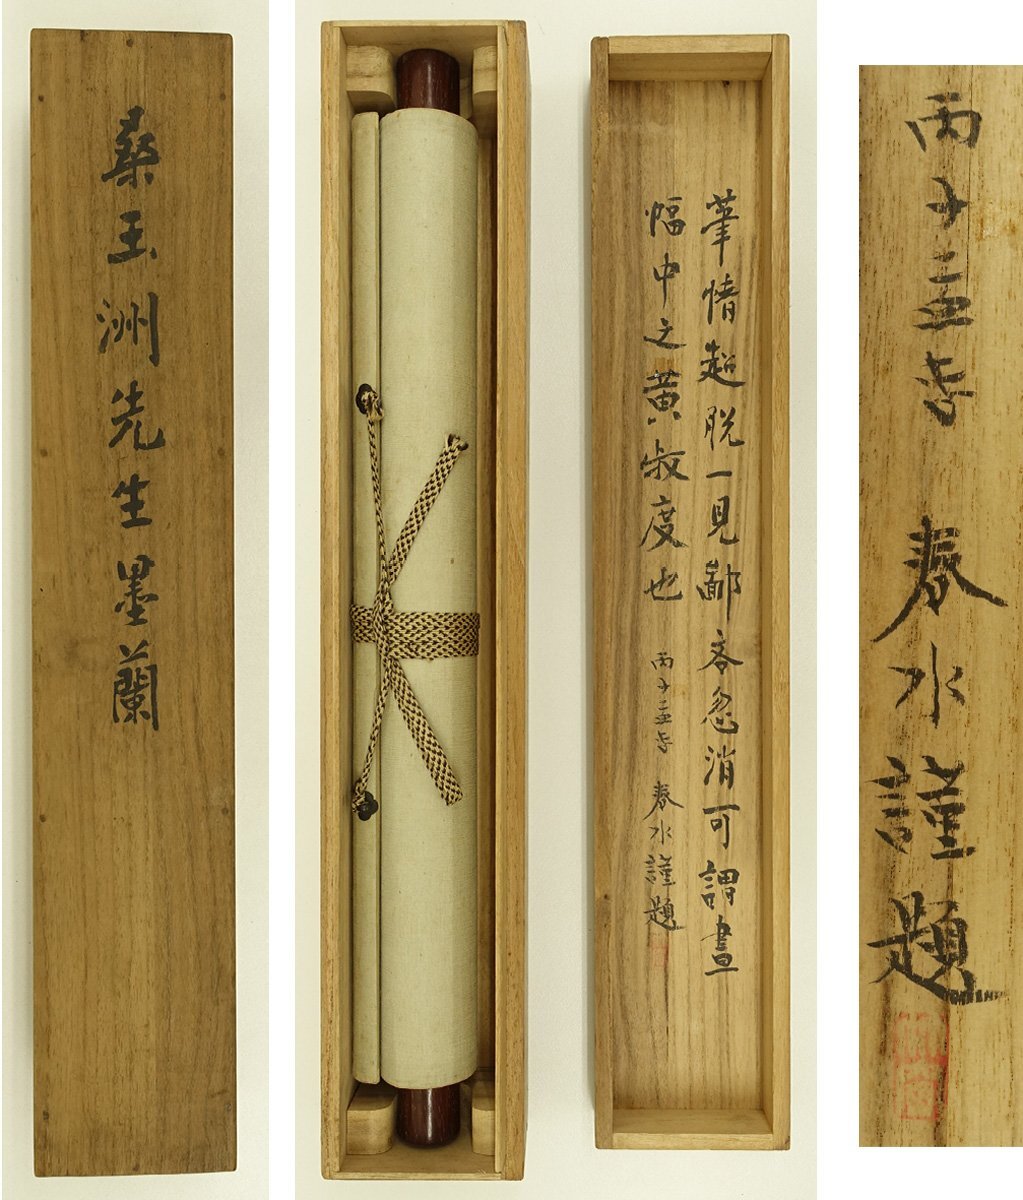 桒玉洲先生墨蘭
筆情超脱一見鄙吝忽消可謂畫
幅中之黄叔度也
丙子孟春 春水謹題
丙子孟春 春水謹題